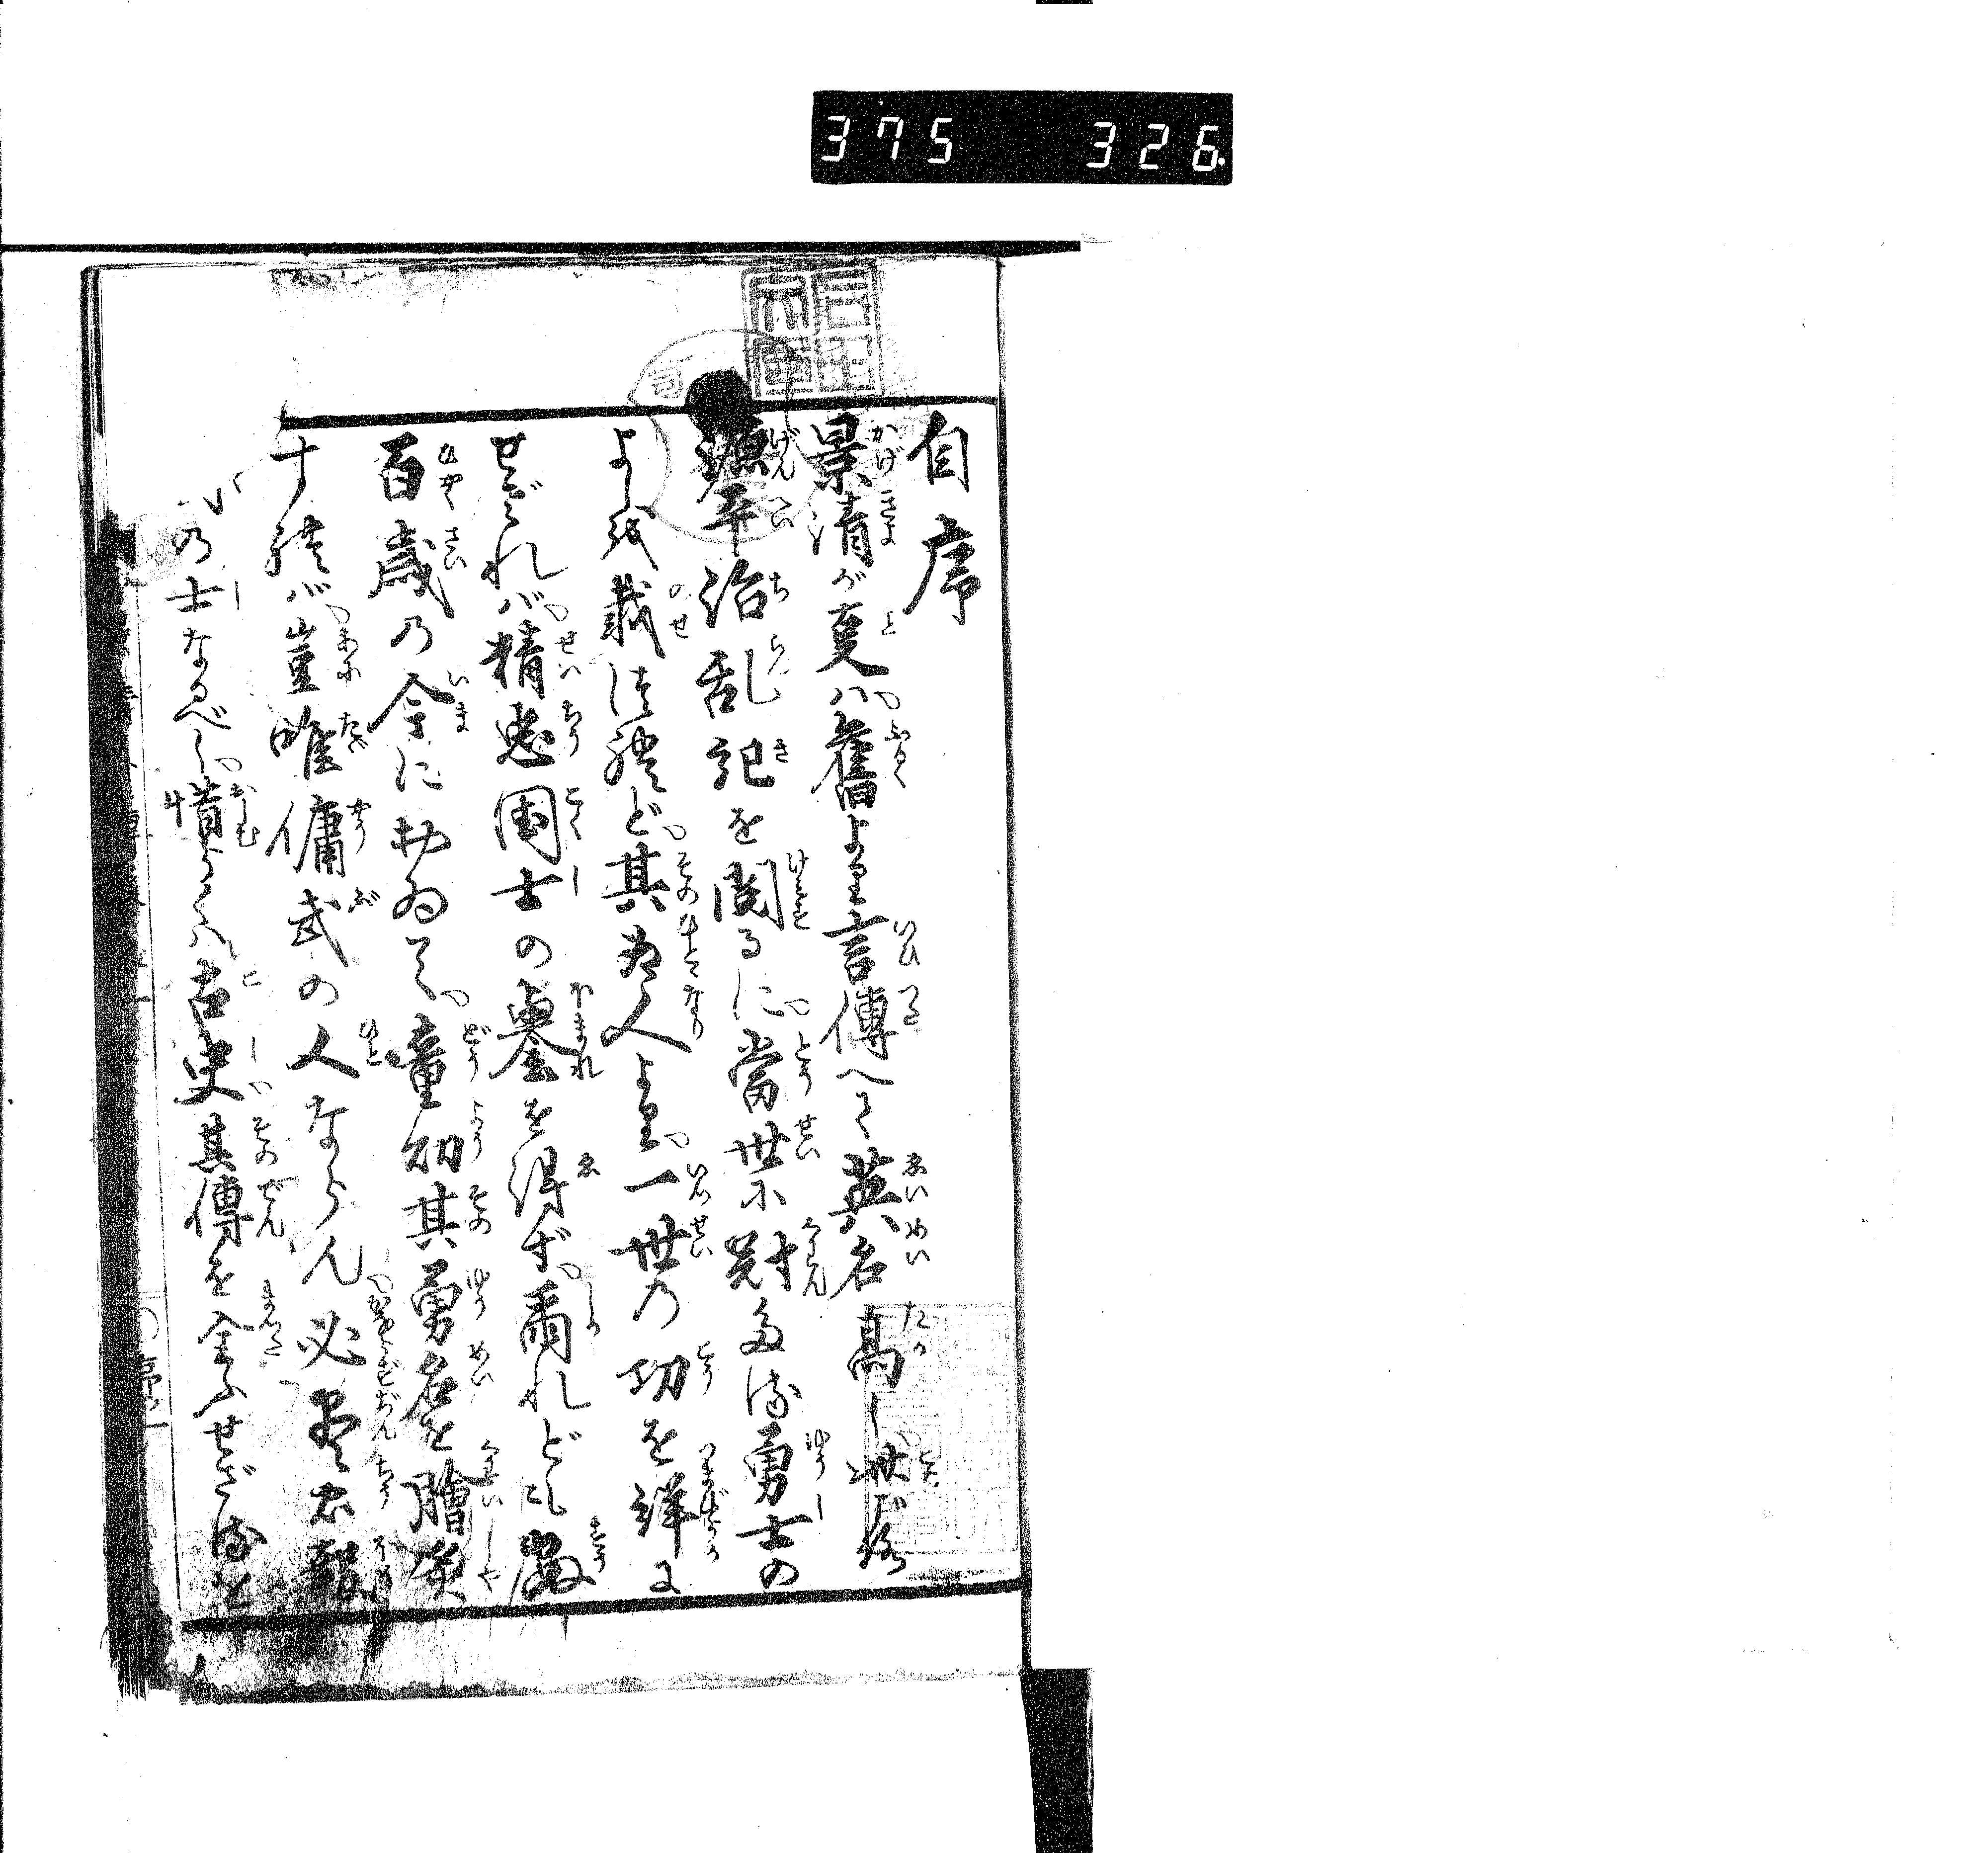 375 326
自序
景清が事ハ舊より言傳へて英名高し世に
源平治乱記を閲るに當世に冠たる勇士の
よしを載たれど其為人より一世の功を詳に
せざれバ精忠國士の譽を得ず爾れども數
百歳の今におゐて童幼其勇名を膾炙
すれバ豈唯庸武の人ならん必尽忠報
の士なるべし惜らくハ古史其傳を全ふせざるを